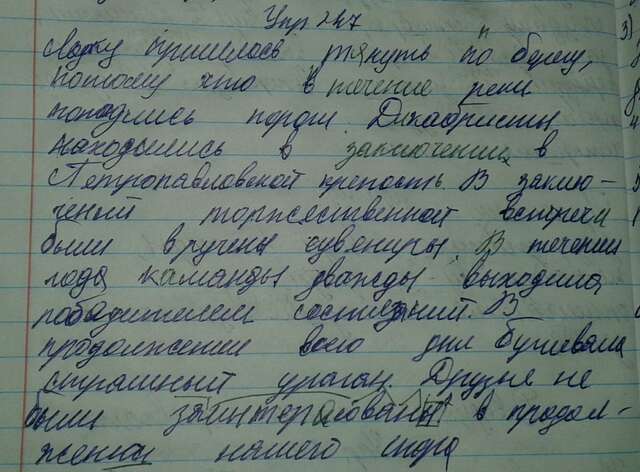 Упр 247
Лодку пришлось тянуть по берегу,
потому что в течение реки
попадались пороги. Декабристы
находились в заключении в
Петропавловской крепость. В заклю-
чений торжественной встречи
были вручены сувениры. В течении
года каманды дважды выходила
победителем состязаний. В
продолжении всего дня бушевала
страшный ураган. Друзья не
были заинтерасованы в продол-
жении нашего спора